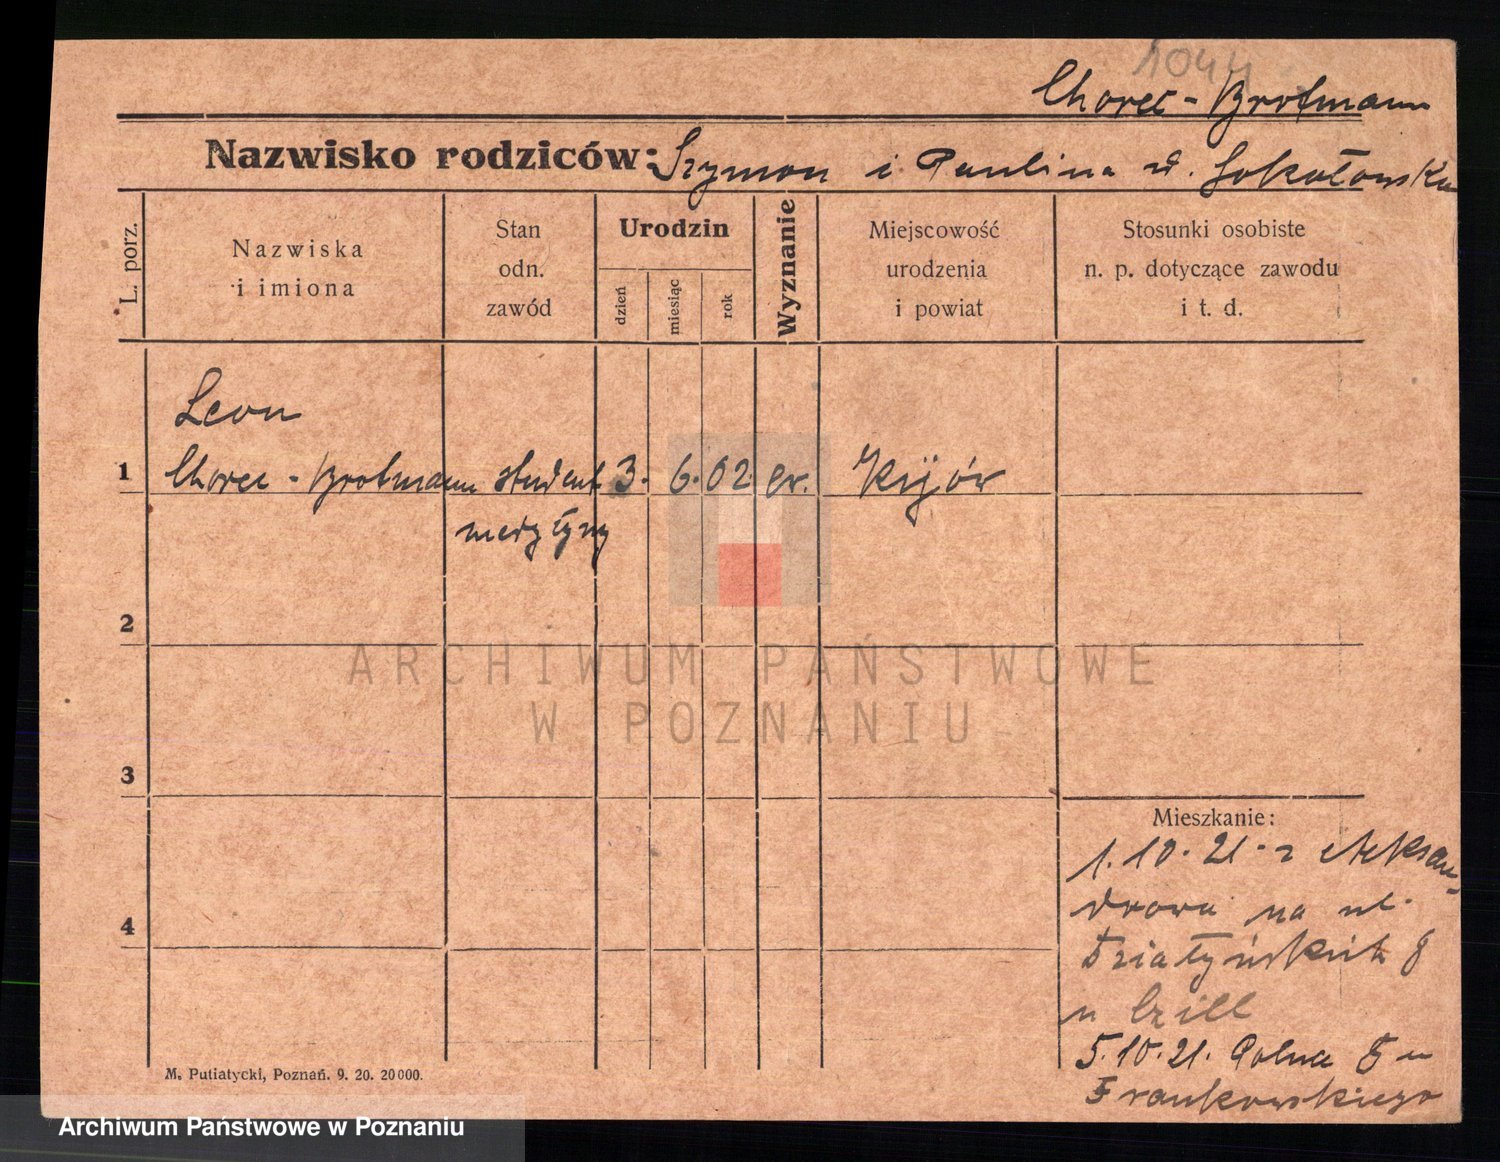 1044
Chorec - Brotmann
Nazwisko rodziców: Szymon i Paulina z d. Sokołowska
L. porz.
Nazwiska
i imiona
Stan
odn.
zawód
Urodzin
dzień
miesiąc
rok
Wyznanie
Miejscowość
urodzenia
i powiat
Stosunki osobiste
n. p. dotyczące zawodu
i t. d.
Leon
1 Chorec - Brotmann student 3. 6. 02 Kijów
medyzyny
2
3
4
Mieszkanie:
1.10.21 z Aleksan-
drowa na ul.
Działyńskich 8
u Czill
5.10.21. Polna 5 u
Frankowskiego
M. Putiatycki, Poznań. 9. 20. 20000.
ARCHIWUM PAŃSTWOWE
W POZNANIU
Archiwum Państwowe w Poznaniu